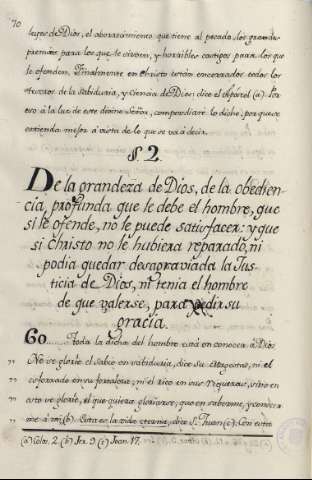 70
leyes de Dios, el aborrecimiento que tiene al pecado, los grandes
premios para los que le sirven, y horribles castigos para los que
le ofenden. Finalmente en Christo están encerrados todos los
thesoros de la Sabiduria, y Ciencia de Dios: dice el Apóstol (a). Por
eso â la luz de este divino Señor, compendiaré lo dicho, porque se
entienda mejor â vista de lo que se va â decir.
§. 2.
De la grandeza de Dios, de la obedien-
cia, profunda que le debe el hombre, que
si le ofende, no le puede satisfacer: y que
si Christo no le hubiera reparado, ni
podia quedar desagraviada la Jus-
ticia de Dios, ni tenia el hombre
de que valerse, para pedir su
gracia.
60 .... Toda la dicha del hombre está en conocer â Dios
No se glorîe el sabio en sabiduria, dice su Magestad, ni el
esforzado en su fortaleza, ni el rico en sus riquezas, sino en
esto se glorîe, el que quiera gloriarse, que en saberme, y conocer
me â mi (b). Esta es la vida eterna, dice S. Juan (c). Con esta
(a) Colos. 2. (b) Jer. 9. (c) Joan. 17.